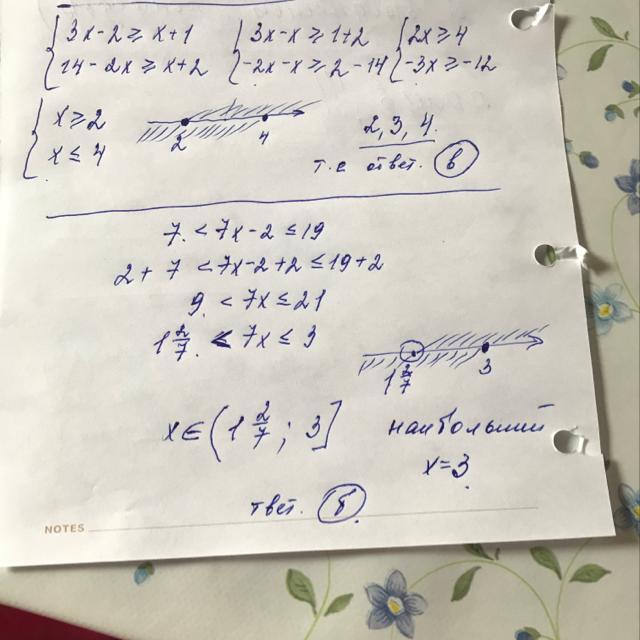 {3x-2≥x+1 {3x-x≥1+2 {2x≥4
{14-2x≥x+2 {-2x-x≥2-14 {-3x≥-12
{x≥2
{x≤4
2 4
2, 3, 4.
т.е ответ. в
7 <7x-2≤19
2+7 <7x-2+2≤19+2
9 <7x≤21
1 2/7 < 7x≤3
1 2/7 3
x∈(1 2/7; 3]
наибольший
x=3
твет. б
NOTES